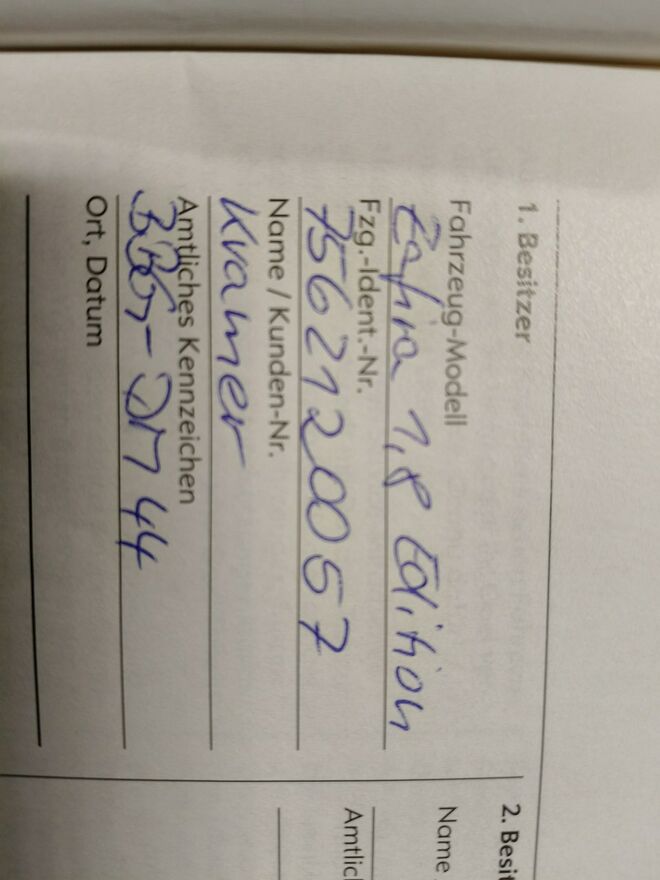 1. Besitzer
Fahrzeug-Modell
Zafira 1,8 Edition
Fzg.-Ident.-Nr.
75621 20057
Name / Kunden-Nr.
Kramer
Amtliches Kennzeichen
DM 44
Ort, Datum
2. Besit
Name
Amtlich